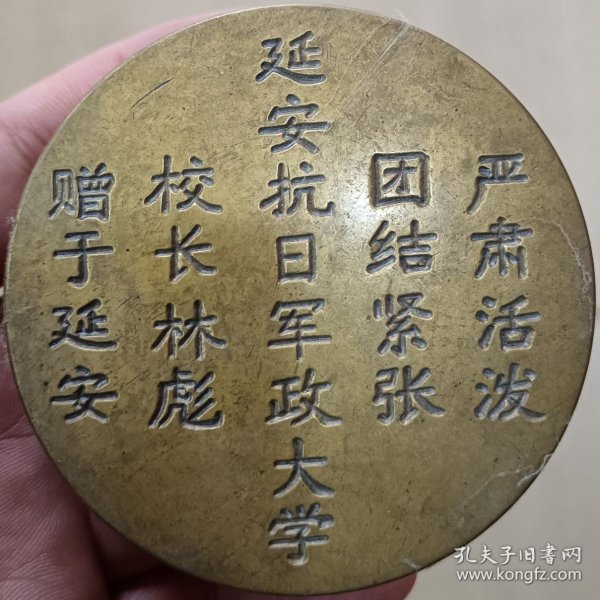 严肃活泼
团结紧张
延安抗日军政大学
校长林彪
赠于延安
孔夫子旧书网
www.kongfz.com